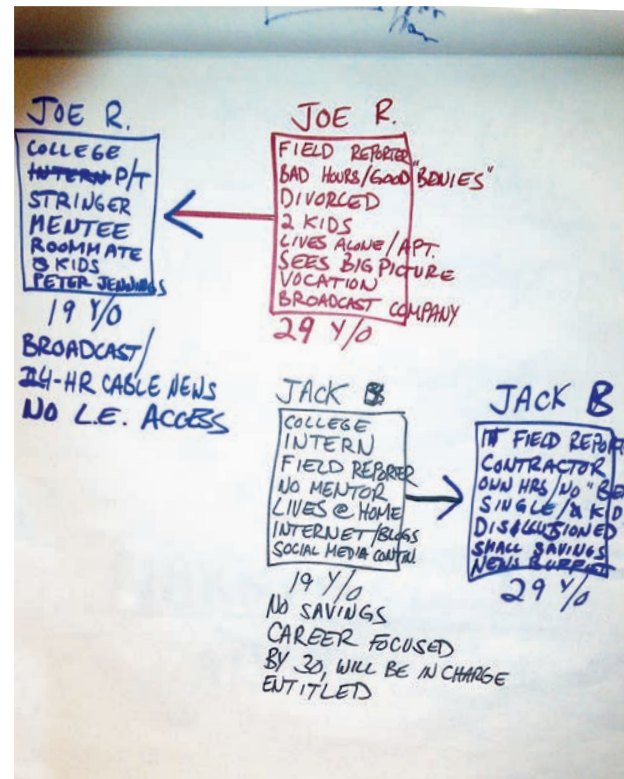 JOE R.
COLLEGE
INTERN P/T
STRINGER
MENTEE
ROOMMATE
KIDS
PETER JENNINGS
19 Y/O
BROADCAST/
24-HR CABLE NEWS
NO L.E. ACCESS
JOE R.
FIELD REPORTER
BAD HOURS/GOOD "BENIES"
DIVORCED
2 KIDS
LIVES ALONE/APT.
SEES BIG PICTURE
VOCATION
BROADCAST COMPANY
29 Y/O
JACK B
COLLEGE
INTERN
FIELD REPORTER
NO MENTOR
LIVES @ HOME
INTERNET/BLOGS
SOCIAL MEDIA CONTIN.
19 Y/O
NO SAVINGS
CAREER FOCUSED
BY 30, WILL BE IN CHARGE
ENTITLED
JACK B
FIELD REPORT
CONTRACTOR
OWN HRS/NO "BE
SINGLE/ KID
DISILLUSIONED
SMALL SAVINGS
NEWS
29 Y/O